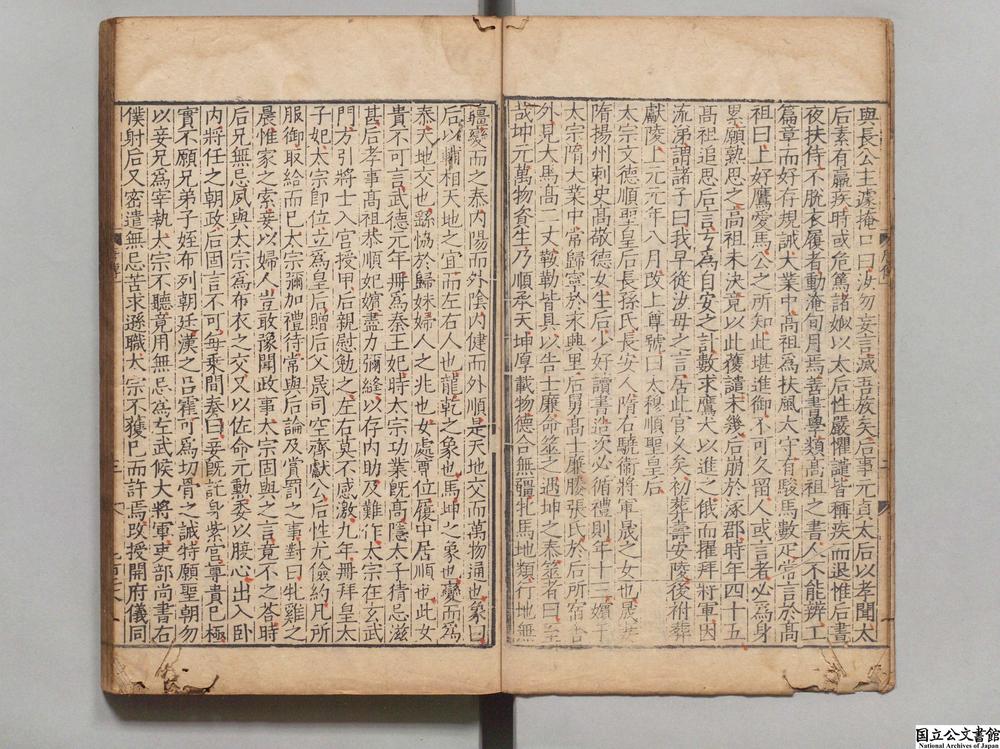 與長公主遽掩口曰汝勿妄言滅吾族矣后事元貞太后以孝聞太
后素有羸疾時或危篤諸姒以太后性嚴懼譴皆稱疾而退惟后晝
夜扶侍不脫衣履者動淹旬月焉善書學類高祖之書人不能辨工
篇章而好存規誡大業中高祖為扶風太守有駿馬數疋常言於高
祖曰上好鷹愛馬公之所知此堪進御不可久留人或言者必為身
累願熟思之高祖未決竟以此獲譴未幾后崩於涿郡時年四十五
高祖追思后言方為自安之計數求鷹犬以進之俄而擢拜將軍因
流涕謂諸子曰我早從汝母之言居此官乂矣初葬壽安陵後祔葬
獻陵上元元年八月改上尊號曰太穆順聖皇后
太宗文德順聖皇后長孫氏長安人隋右驍衛將軍晟之女也晟妻
隋揚州刺史高敬德女生后少好讀書造次必循禮則年十三嬪于
太宗隋大業中常歸寧於永興里后舅高士廉媵張氏於后所宿舍
外見大馬高二丈鞍勒皆具以告士廉命筮之遇坤之泰筮者曰至
哉坤元萬物資生乃順承天坤厚載物德合無疆牝馬地類行地無
疆變而之泰內陽而外陰內健而外順是天地交而萬物通也象曰
后以輔相天地之宜而左右人也龍乾之象也馬坤之象也變而為
泰天地交也繇恊於歸妹婦人之兆也女處尊位履中居順也此女
貴不可言武德元年冊為秦王妃時太宗功業既高隱太子猜忌滋
甚后孝事高祖恭順妃嬪盡力彌縫以存內助及難作太宗在玄武
門方引將士入宮授甲后親慰勉之左右莫不感激九年冊拜皇太
子妃太宗即位立為皇后贈后父晟司空齊獻公后性尤儉約凡所
服御取給而已太宗彌加禮待常與后論及賞罰之事對曰牝雞之
晨惟家之索妾以婦人豈敢豫聞政事太宗固與之言竟不之荅時
后兄無忌夙與太宗為布衣之交又以佐命元勳委以腹心出入臥
內將任之朝政后固言不可每乘間奏曰妾既託身紫宮尊貴已極
實不願兄弟子姪布列朝廷漢之呂霍可為切骨之誡特願聖朝勿
以妾兄為宰執太宗不聽竟用無忌為左武候大將軍吏部尚書右
僕射后又密遣無忌苦求遜職太宗不獲已而許焉改授開府儀同
国立公文書館
National Archives of Japan